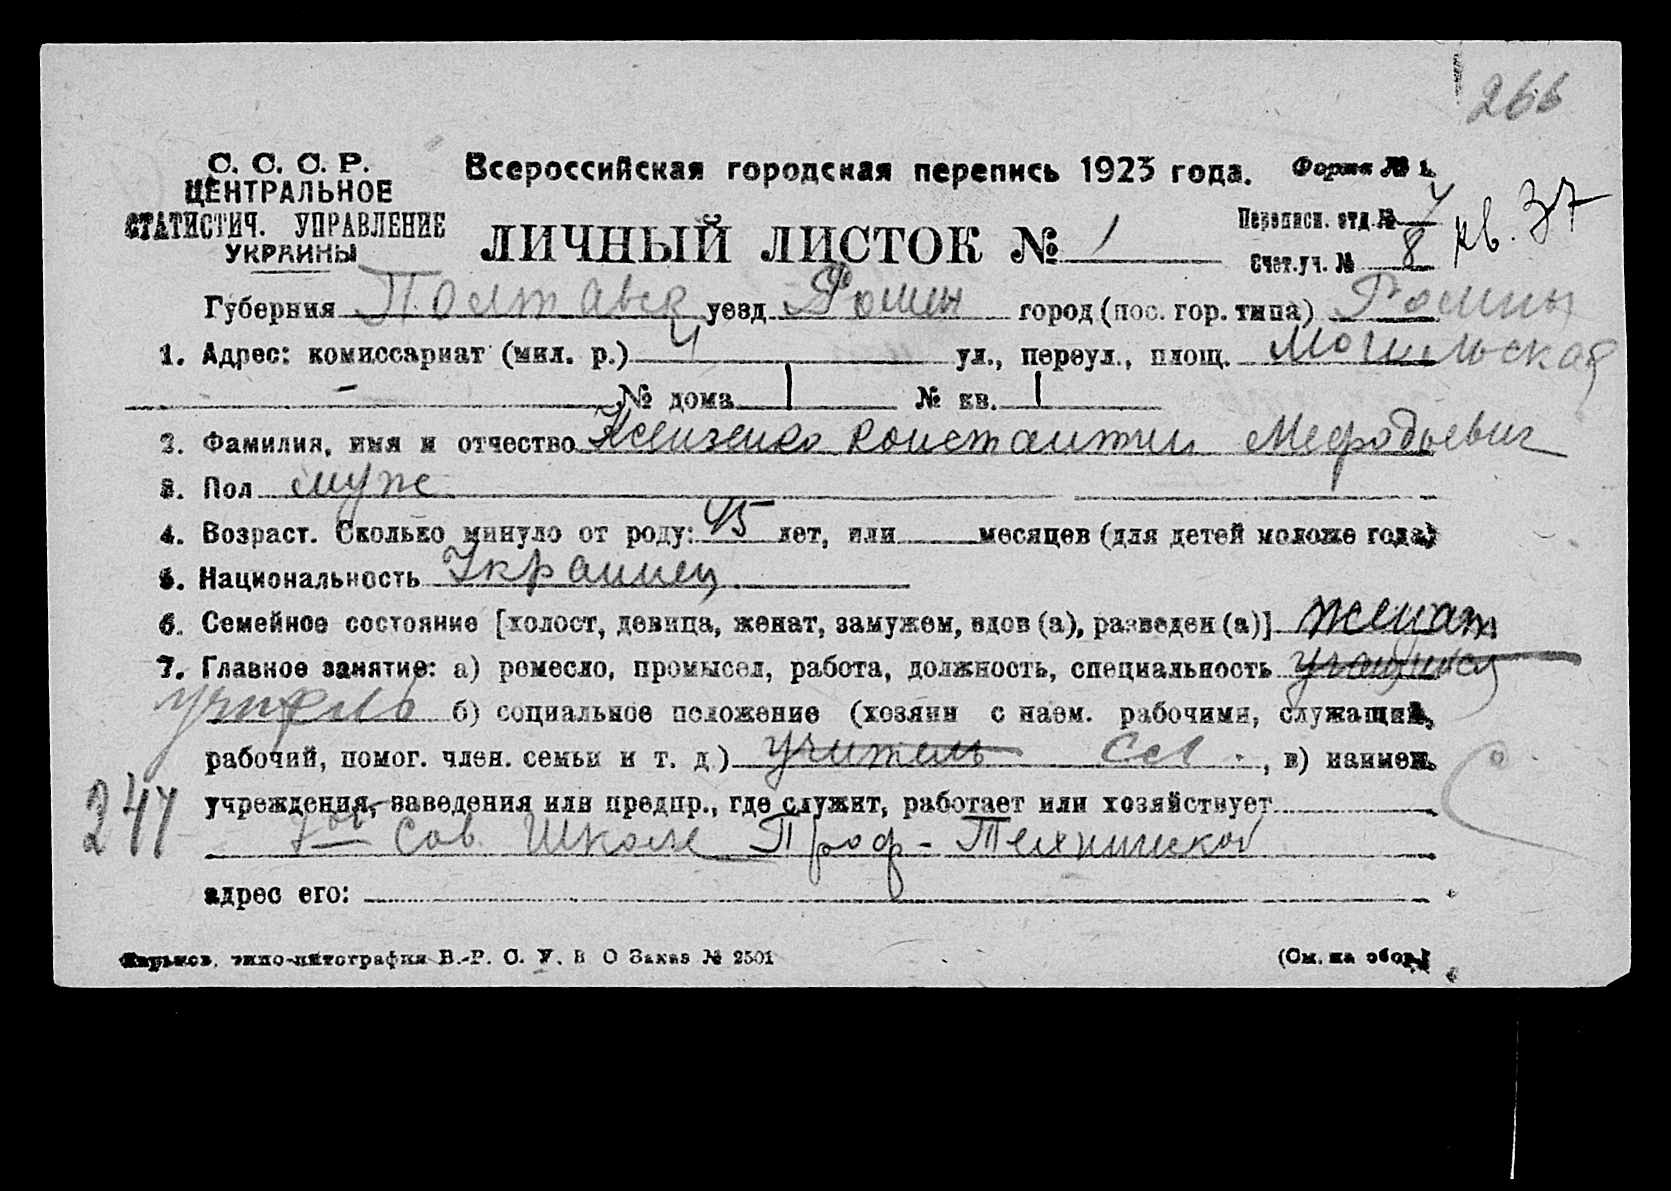 266
С. С. С. Р.
ЦЕНТРАЛЬНОЕ
СТАТИСТИЧ. УПРАВЛЕНИЕ
УКРАИНЫ
Всероссийская городская перепись 1923 года.
Форма № 1.
ЛИЧНЫЙ ЛИСТОК № 1
Переписн. отд. № 4
Счет. уч. № 8
кв. 37
Губерния Полтавск уезд Ромен город (пос. гор. типа) Ромны
1. Адрес: комиссариат (мил. р.) 4 ул., переул., площ. Могильская
— № дома 1 № кв. 1
2. Фамилия, имя и отчество Ксензенко Константин Мефодьевич
3. Пол муж
4. Возраст. Сколько минуло от роду: 45 лет, или месяцев (для детей моложе года)
5. Национальность Украинец
6. Семейное состояние [холост, девица, женат, замужем, вдов (а), разведен (а)] женат
7. Главное занятие: а) ремесло, промысел, работа, должность, специальность
учитель б) социальное положение (хозяин с наем. рабочими, служащий,
рабочий, помог. член. семьи и т. д.) учитель , в) наимен.
учреждения, заведения или предпр., где служит, работает или хозяйствует
Сов. Школе Проф-Технической
247
адрес его:
Харьков, типо-литография В.-Р. С. У. В О Заказ № 2501
(См. на обор.)